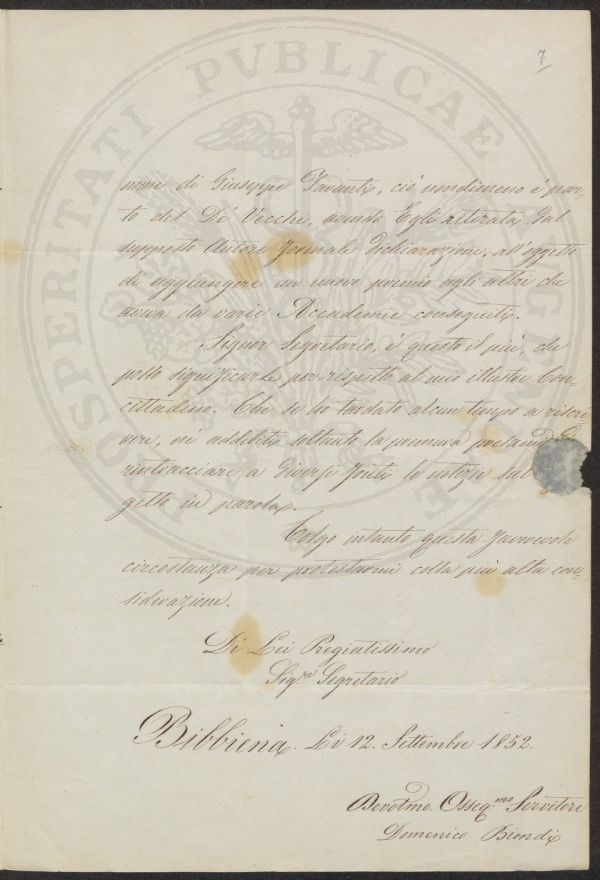 7
nome di Giuseppe Tavanti, ciò nondimeno è par-
to del De' Vecchi, avendo Egli ritirata dal
supposto Autore formale dichiarazione, all'oggetto
di aggiungere un nuovo premio agli altri che
aveva da varie Accademie conseguiti.
Signor Segretario, è questo il più, che
posso significarle per rispetto al mio illustre Con-
cittadino. Che se ho tardato alcun tempo a riscri-
vere, ne addebiti soltanto la premura
rintracciare a diverse fonti le notizie sul
getto in parola.
Colgo intanto questa favorevole
circostanza per protestarmi colla più alta con-
siderazione.
Di Lei Pregiatissimo
Sig.re Segretario
Bibbiena. Li 12. Settembre 1852.
Devotmo. Osseq.mo Servitore
Domenico Biondi
PROSPERITATI PVBLICAE